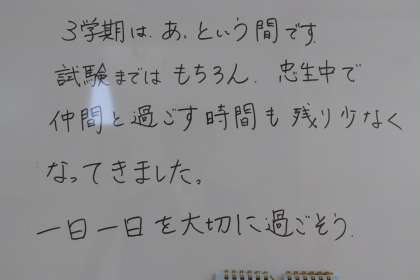 3学期は、あ、という間です
試験まではもちろん、忠生中で
仲間と過ごす時間も残り少なく
なってきました。
一日一日を大切に過ごそう.